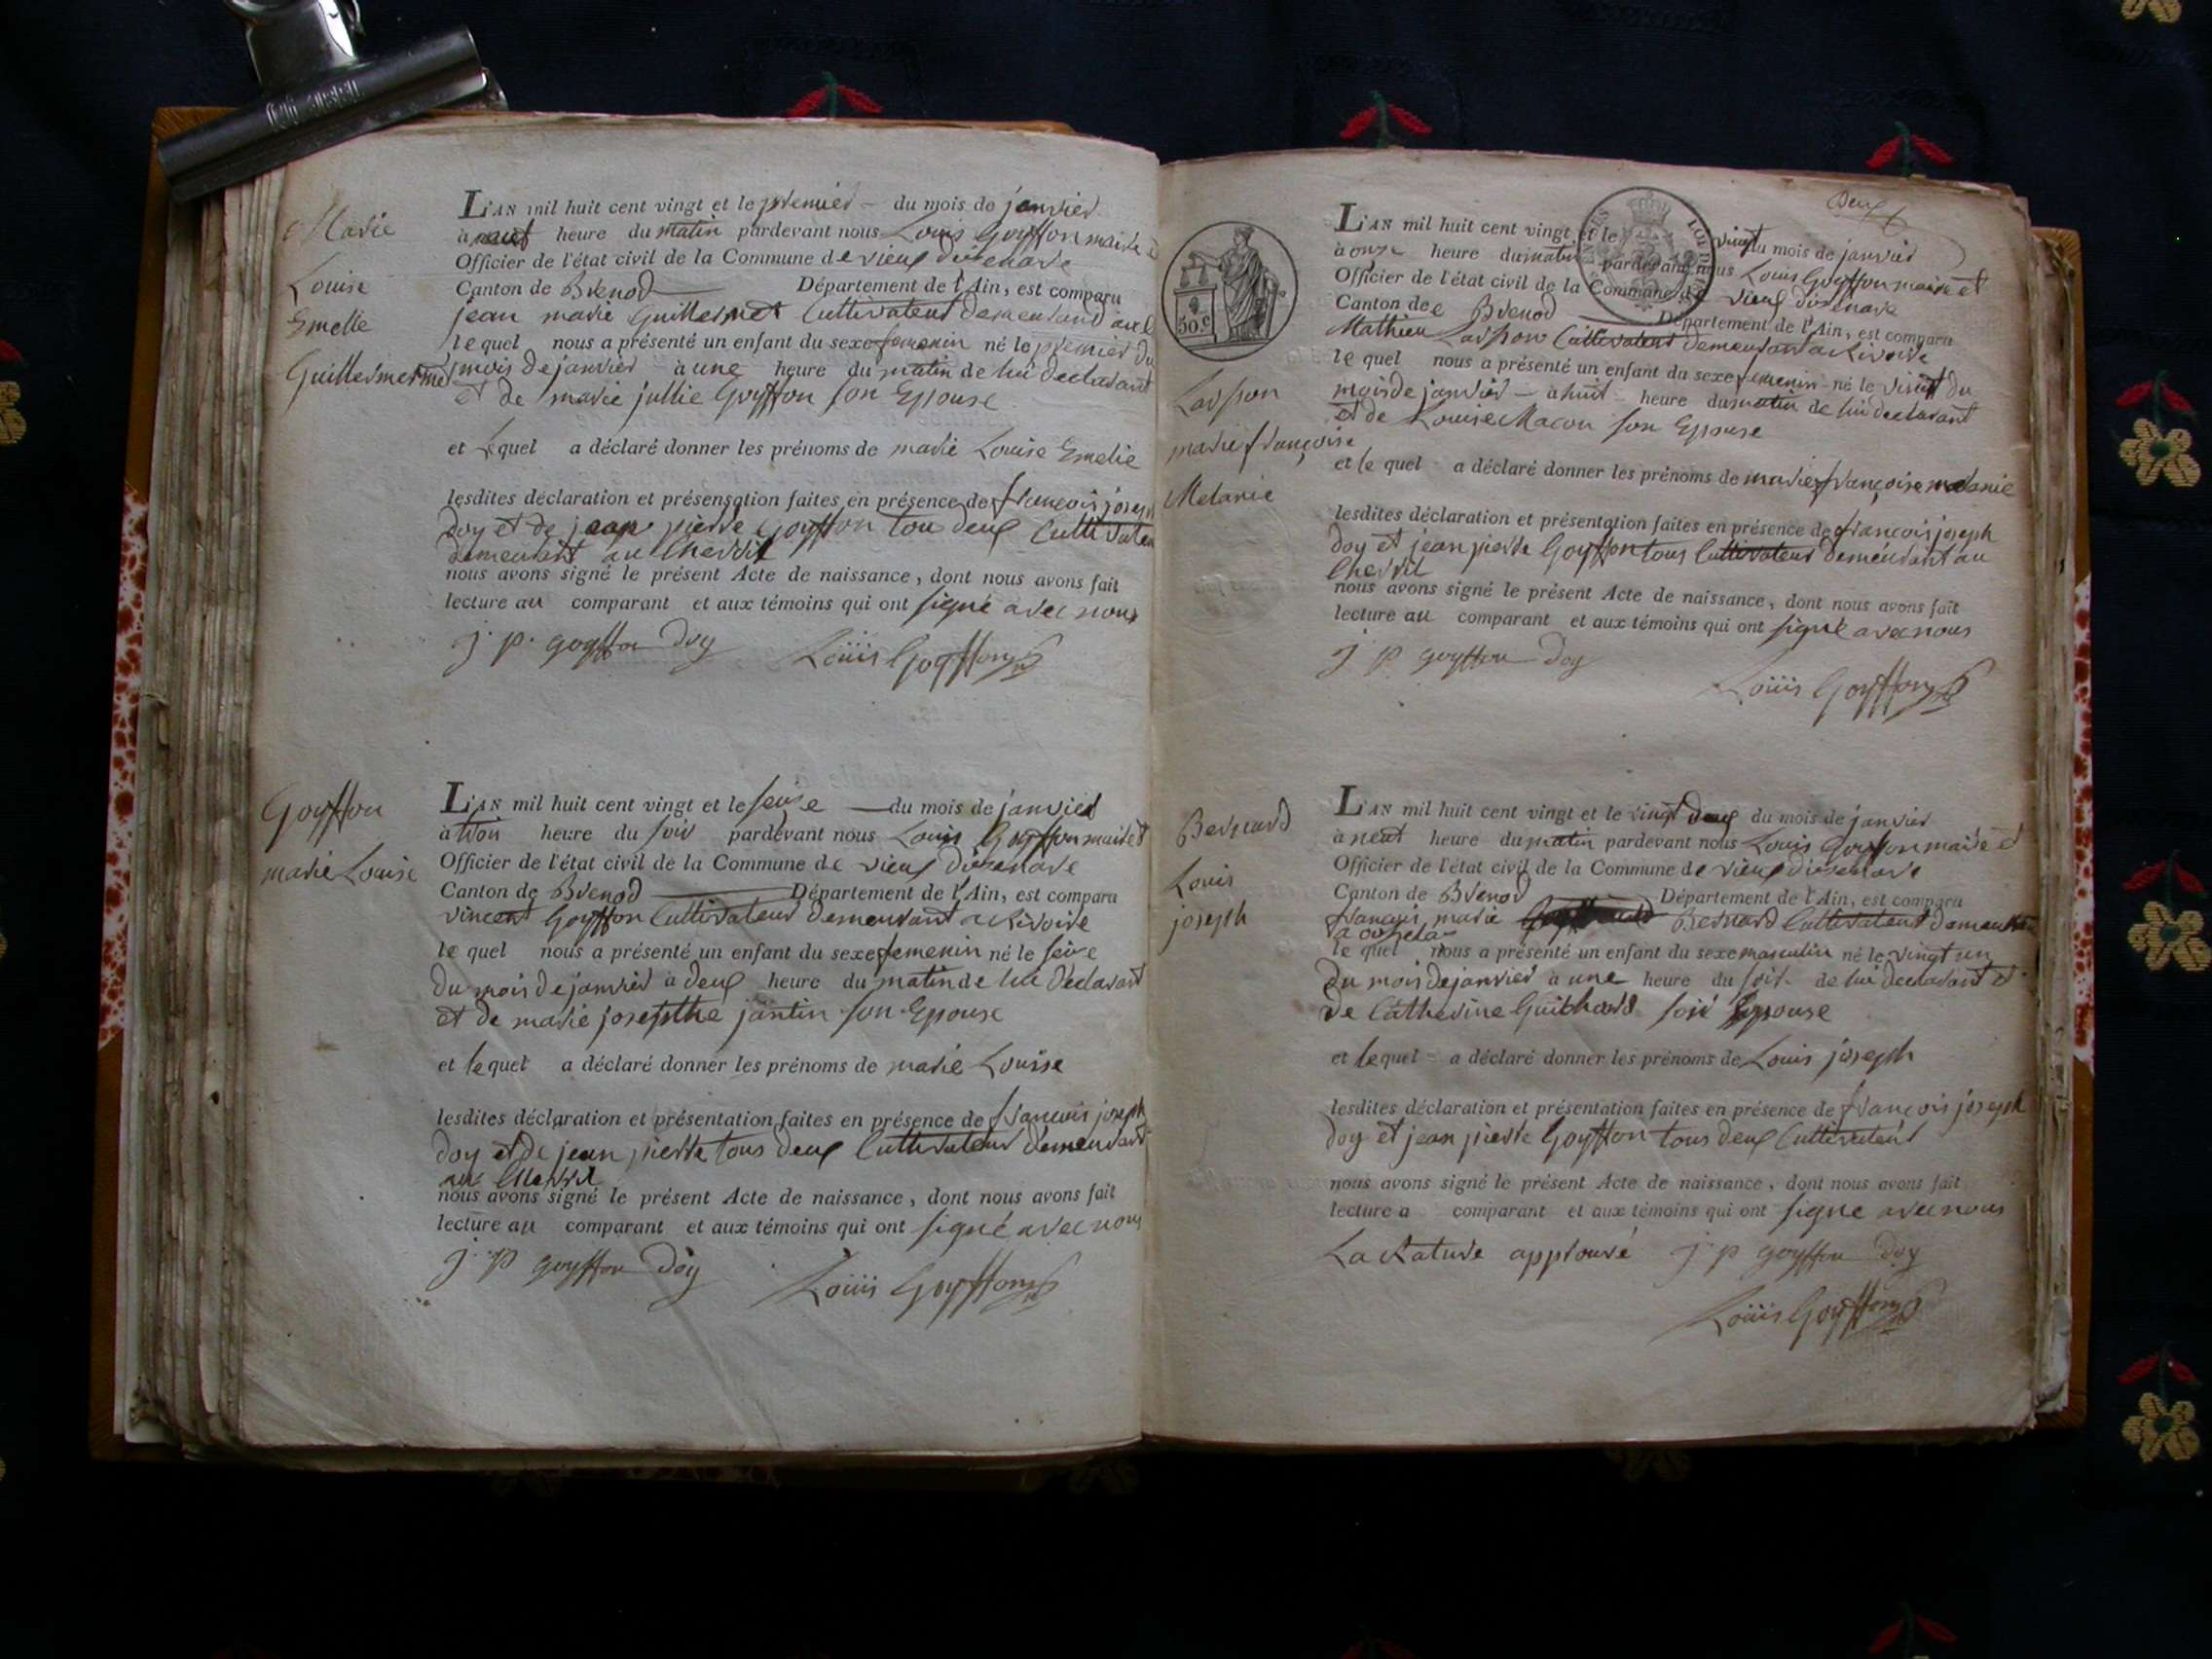 Marie
Louise
Emelie
L'AN mil huit cent vingt et le premier - du mois de janvier
à neuf heure du matin pardevant nous Louis Goyffon maire et
Officier de l'état civil de la Commune de vieux disenave
Canton de Brenod Département de l'Ain, est comparu
jean marie Guillermet Cultivateur demeurant
le quel nous a présenté un enfant du sexe femenin né le premier du
mois de janvier à une heure du matin de lui declarant
et de marie jullie Goyffon son Epouse
et lequel a déclaré donner les prénoms de marie Louise Emelie
lesdites déclaration et présensation faites en présence de francois joseph
Doy et de jean pierre Goyffon tou deux Cultivateu
demeurant au Chevril
nous avons signé le présent Acte de naissance, dont nous avons fait
lecture au comparant et aux témoins qui ont signé avec nous
j. p. goyffon Doy Loüis Goyffon
Goyffon
marie Louise
L'AN mil huit cent vingt et le seise du mois de janvier
à troi heure du soir pardevant nous Louis Goyffon maire et
Officier de l'état civil de la Commune de vieux disenave
Canton de Brenod Département de l'Ain, est comparu
vincent Goyffon Cultivateur demeurant a Rivoire
le quel nous a présenté un enfant du sexe femenin né le seise
du mois de janvier à deux heure du matin de lui declarant
et de marie josepthe jantin son Epouse
et lequel a déclaré donner les prénoms de marie Louise
lesdites déclaration et présentation faites en présence de francois joseph
doy et de jean pierre tous deux Cultivateur demeurant
au Chevril
nous avons signé le présent Acte de naissance, dont nous avons fait
lecture au comparant et aux témoins qui ont signé avec nous
j. p goyffon Doy Loüis Goyffon
Deux
50.c
Larpon
marie françoise
Melanie
L'AN mil huit cent vingt et le vingt du mois de janvier
à onze heure du matin pardevant nous Louis Goyffon maire et
Officier de l'état civil de la Commune de vieux disenave
Canton de Brenod Département de l'Ain, est comparu
Mathieu Larpon Cultivateur demeurant a Rivoire
le quel nous a présenté un enfant du sexe femenin - né le vingt du
mois de janvier - à huit heure du matin de lui declarant
et de Louise Macon son Epouse
et le quel a déclaré donner les prénoms de marie françoise melanie
lesdites déclaration et présentation faites en présence de francois joseph
doy et jean pierre Goyffon tous Cultivateur demeurant au
Chevril
nous avons signé le présent Acte de naissance, dont nous avons fait
lecture au comparant et aux témoins qui ont signé avec nous
j p goyffon Doy
Loüis Goyffon
Bernard
Louis
joseph
L'AN mil huit cent vingt et le vingt deux du mois de janvier
à neuf heure du matin pardevant nous Louis Goyffon maire et
Officier de l'état civil de la Commune de vieux disenave
Canton de Brenod Département de l'Ain, est comparu
francois marie Bernard Cultivateur demeurant
le quel nous a présenté un enfant du sexe masculin né le vingt un
du mois de janvier à une heure du soir de lui declarant et
de Catherine Guichard son Epouse
et lequel a déclaré donner les prénoms de Louis joseph
lesdites déclaration et présentation faites en présence de francois joseph
doy et jean pierre Goyffon tous deux Cultivateur
nous avons signé le présent Acte de naissance, dont nous avons fait
lecture a comparant et aux témoins qui ont signe avec nous
La Rature approuvé j. p goyffon Doy
Loüis Goyffon